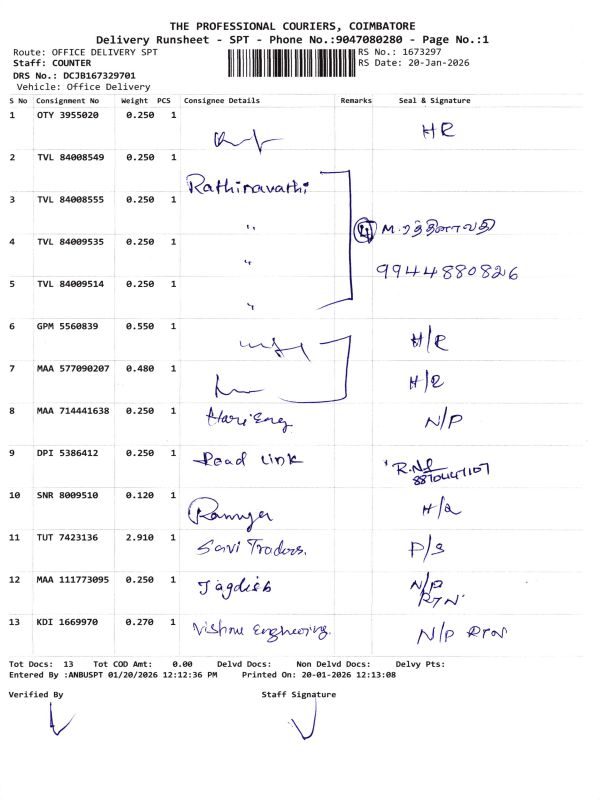 THE PROFESSIONAL COURIERS, COIMBATORE
Delivery Runsheet - SPT - Phone No.:9047080280 - Page No.:1
Route: OFFICE DELIVERY SPT RS No.: 1673297
Staff: COUNTER RS Date: 20-Jan-2026
DRS No.: DCJB167329701
Vehicle: Office Delivery
S No Consignment No Weight PCS Consignee Details Remarks Seal & Signature
1 OTY 3955020 0.250 1 HR
2 TVL 84008549 0.250 1 Rathinavathi
3 TVL 84008555 0.250 1 "
4 TVL 84009535 0.250 1 " 4 M. ரத்தினாவதி
9944880826
5 TVL 84009514 0.250 1 "
6 GPM 5560839 0.550 1 H/R
7 MAA 577090207 0.480 1 H/R
8 MAA 714441638 0.250 1 Hari Eng N/P
9 DPI 5386412 0.250 1 Road Link
10 SNR 8009510 0.120 1
11 TUT 7423136 2.910 1 Savi Traders. P/S
12 MAA 111773095 0.250 1 Jagdish N/P
RTN
13 KDI 1669970 0.270 1 Vishnu Engineering. N/P RTN
Tot Docs: 13 Tot COD Amt: 0.00 Delvd Docs: Non Delvd Docs: Delvy Pts:
Entered By :ANBUSPT 01/20/2026 12:12:36 PM Printed On: 20-01-2026 12:13:08
Verified By Staff Signature